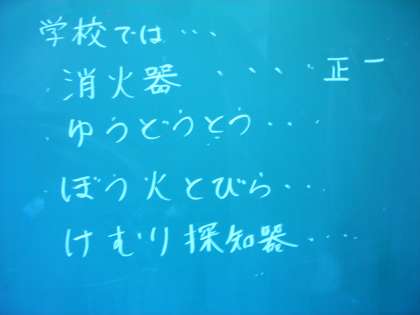 学校では・・・
消火器・・・・正一
ゆうどうとう・・・
ぼう火とびら・・・
けむり探知器・・・・